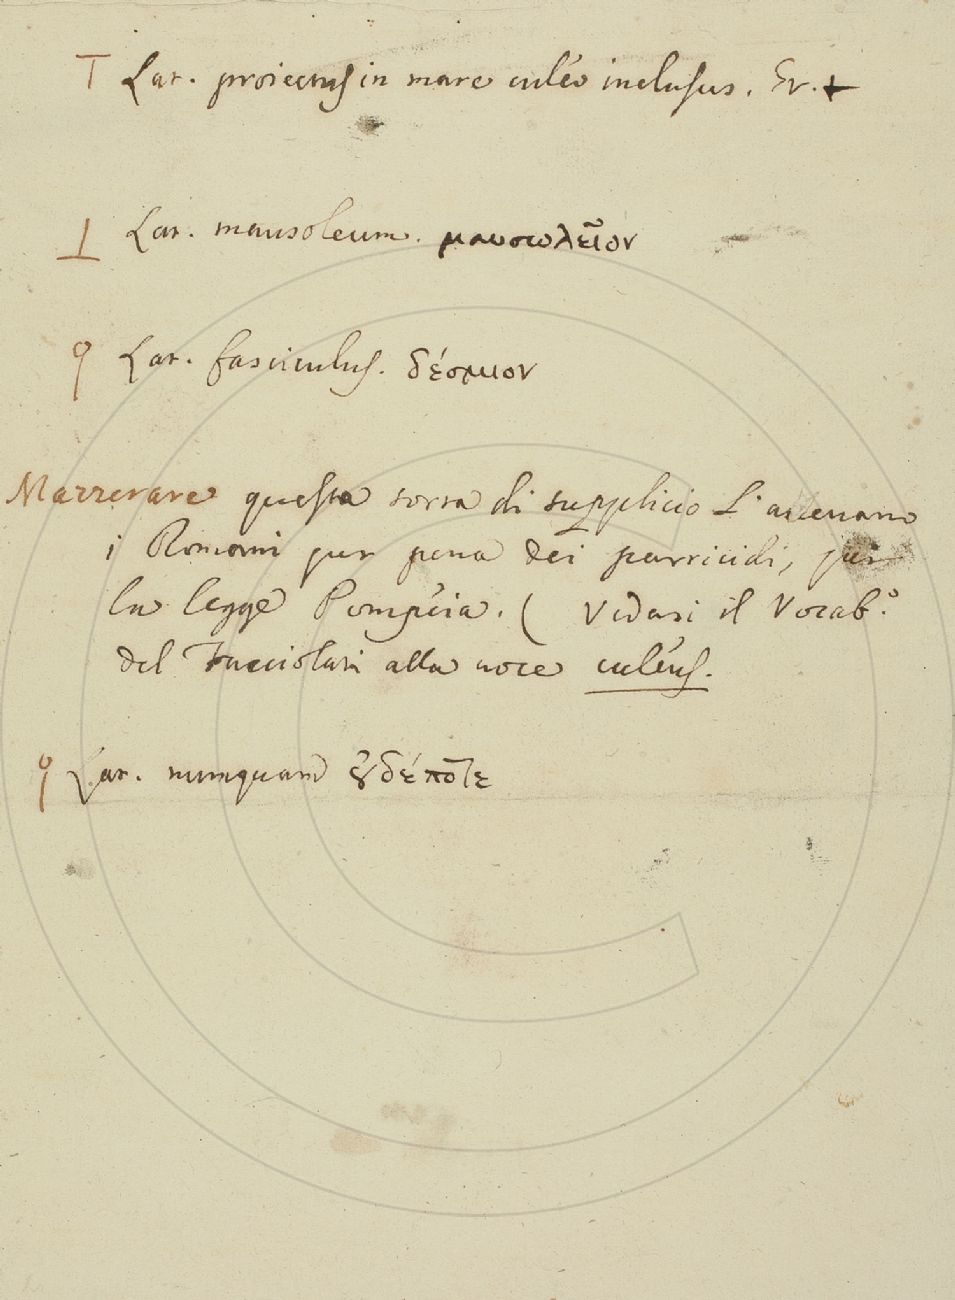 T Lat. proiectus in mare culeo inclusus. Gr. +
⊥ Lat. mausoleum. μαυσωλεῖον
φ Lat. fasciculus. δέσμιον
Mazzerare questa sorta di supplicio l'aveuano
i Romani per pena dei parricidi, per
la legge Pompeia. ( Vedasi il Vocab.º
del Facciolati alla uoce culeus.
φ Lat. nunquam οὐδέποτε